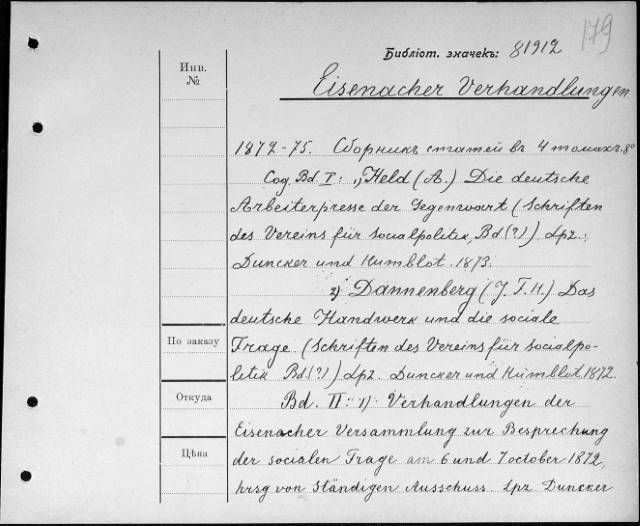 179
Библіот. значекъ: 81912
Инв.
№
Eisenacher Verhandlungen
1872-75. Сборникъ статей въ 4 томахъ. 8°
Сод. Bd. I: 1) Held (A.) Die deutsche
Arbeiterpresse der Gegenwart (Schriften
des Vereins für Socialpolitik, Bd (?)) Lpz.
Duncker und Humblot. 1873.
2) Dannenberg (J. F. H.) Das
deutsche Handwerk und die sociale
По заказу
Frage. (Schriften des Vereins für Socialpo-
litik Bd (?)) Lpz. Duncker und Humblot 1872.
Откуда
Bd. II: 1) Verhandlungen der
Eisenacher Versammlung zur Besprechung
Цѣна
der socialen Frage am 6 und 7 october 1872,
hrsg von Ständigen Ausschuss. Lpz Duncker